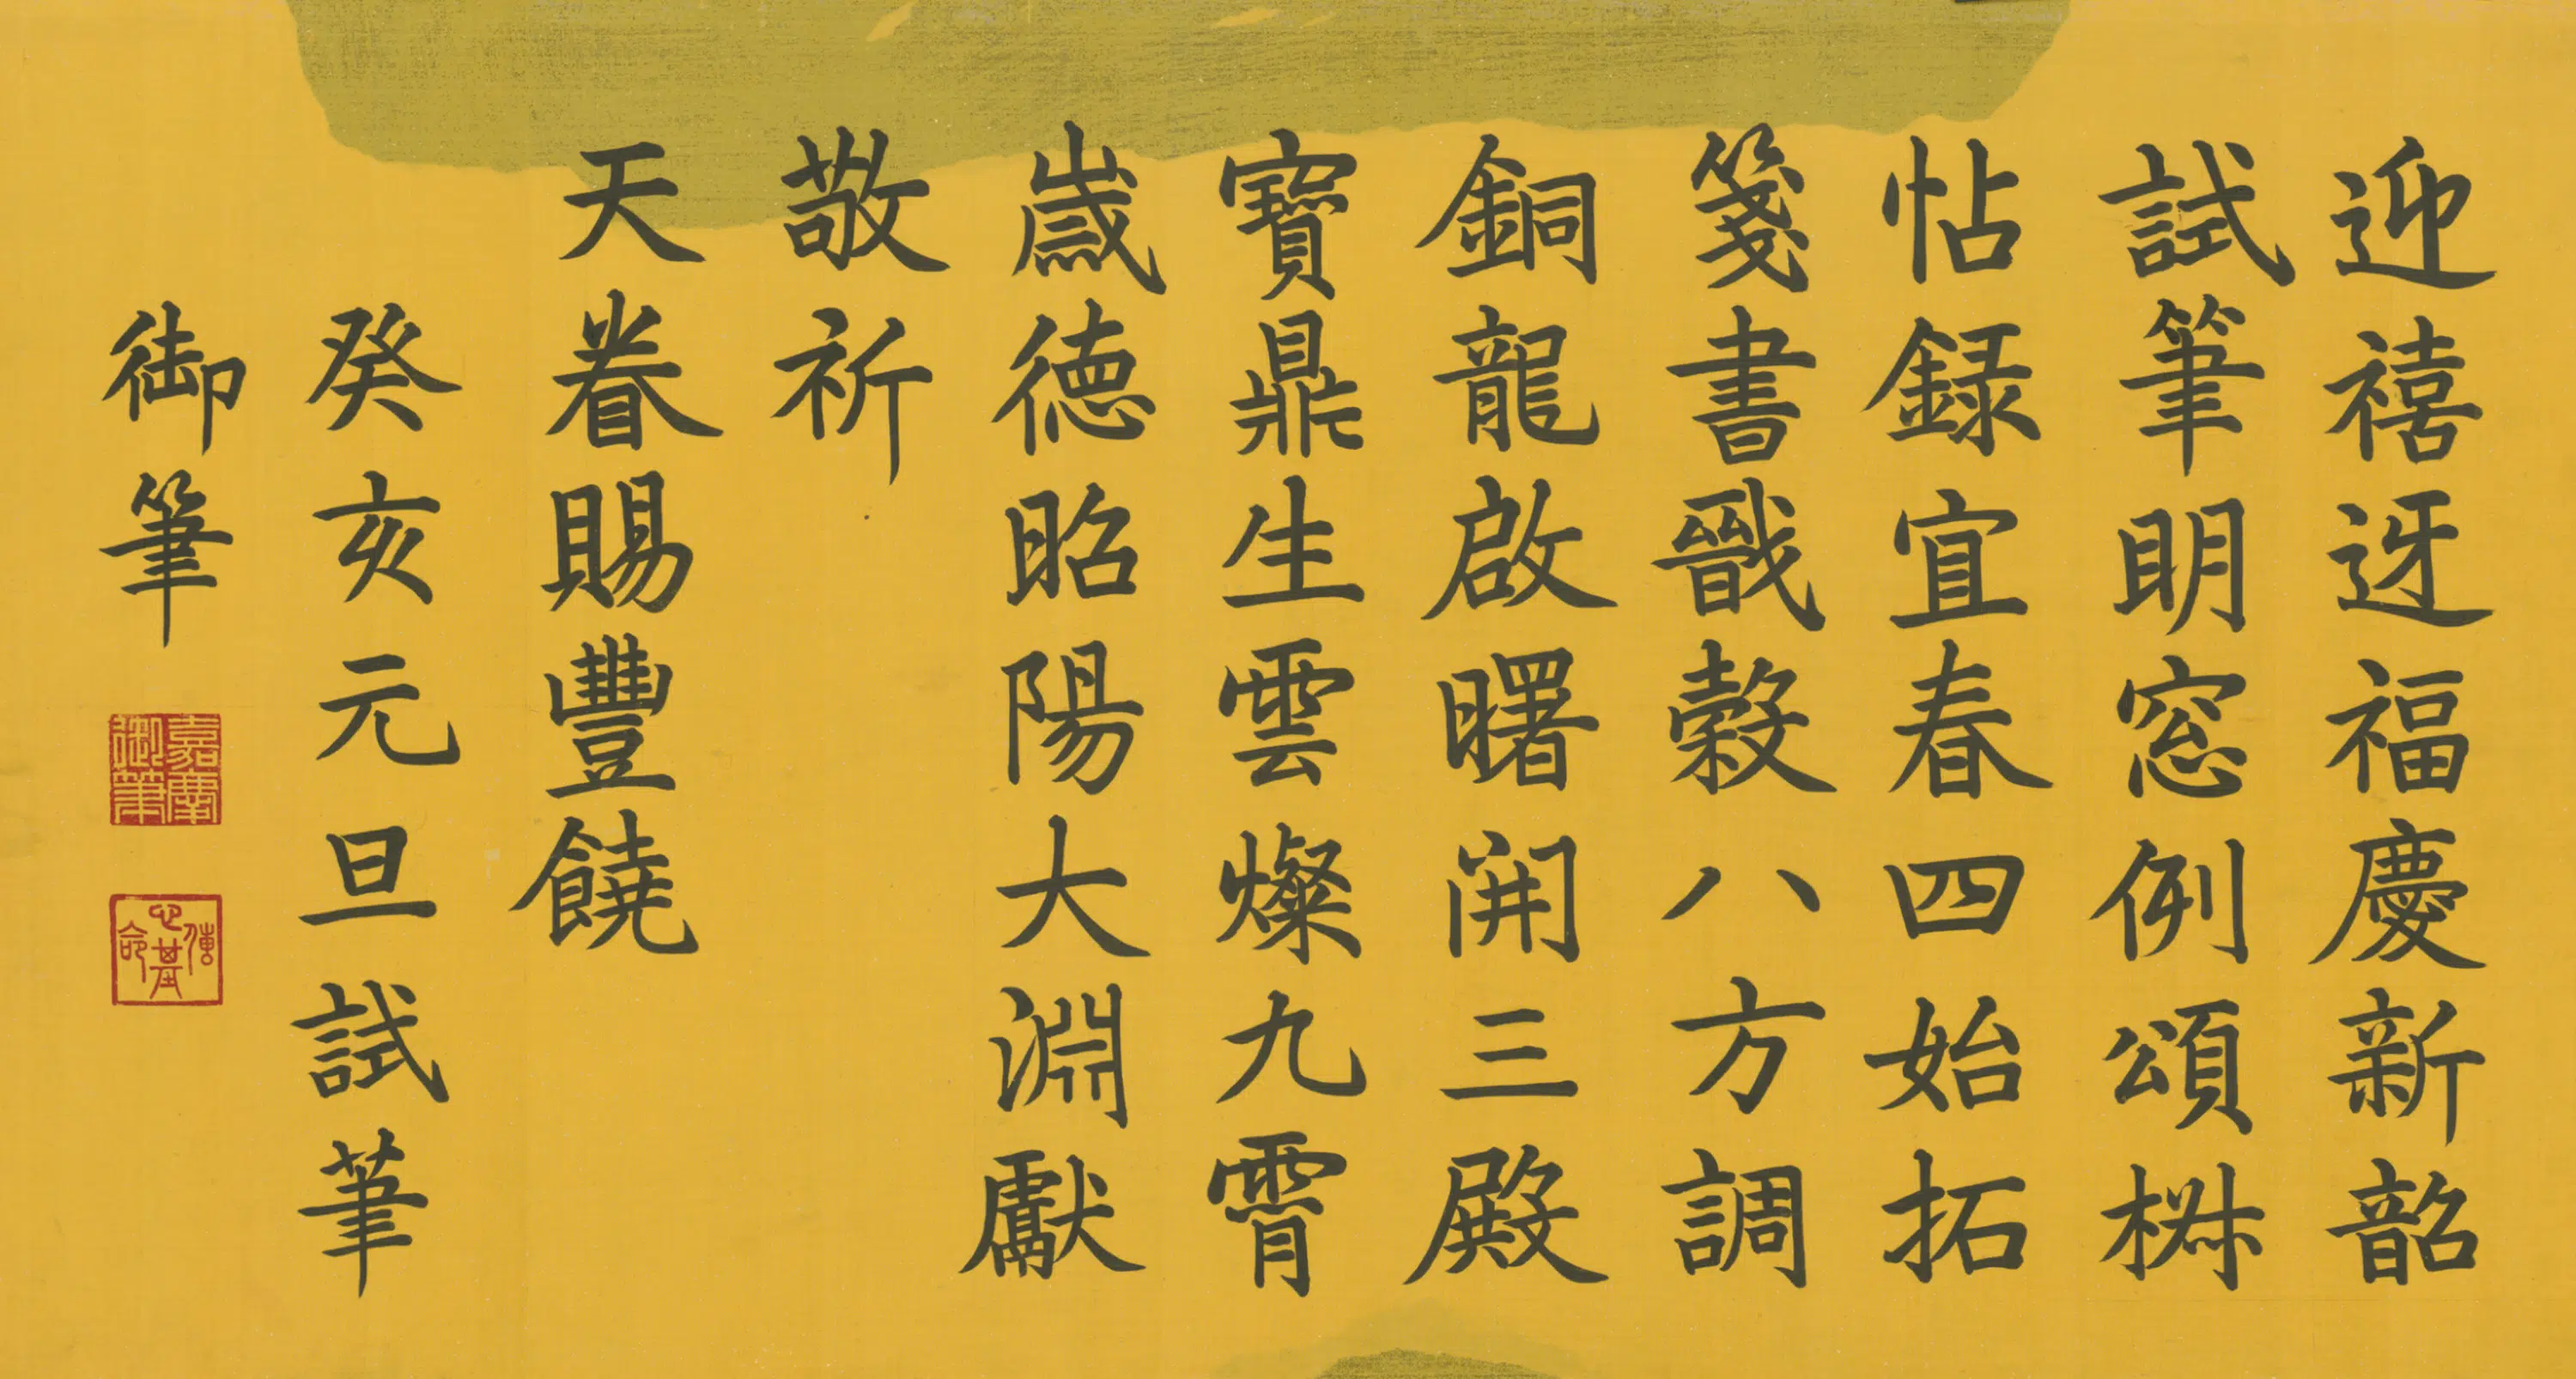 迎禧迓福慶新韶
試筆明窓例頌椒
帖録宜春四始拓
箋書戬穀八方調
銅龍啟曙開三殿
寶鼎生雲燦九霄
歲德昭陽大淵獻
敬祈
天眷賜豐饒
癸亥元旦試筆
御筆
嘉慶
御筆
傳心基命